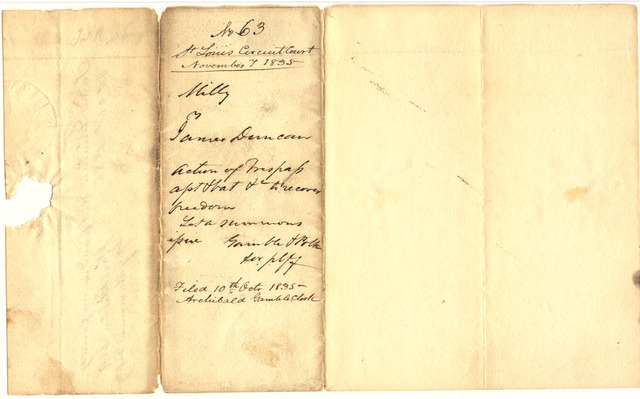 No 63
St Louis Circuit Court
November T 1835
Milly
vs
James Duncan
Action of Trespass
aslt & bat &c to recover
freedom
Let a summons
issue Gamble & Polk
for plff
Filed 10th Octr 1835
Archibald Gamble Clerk